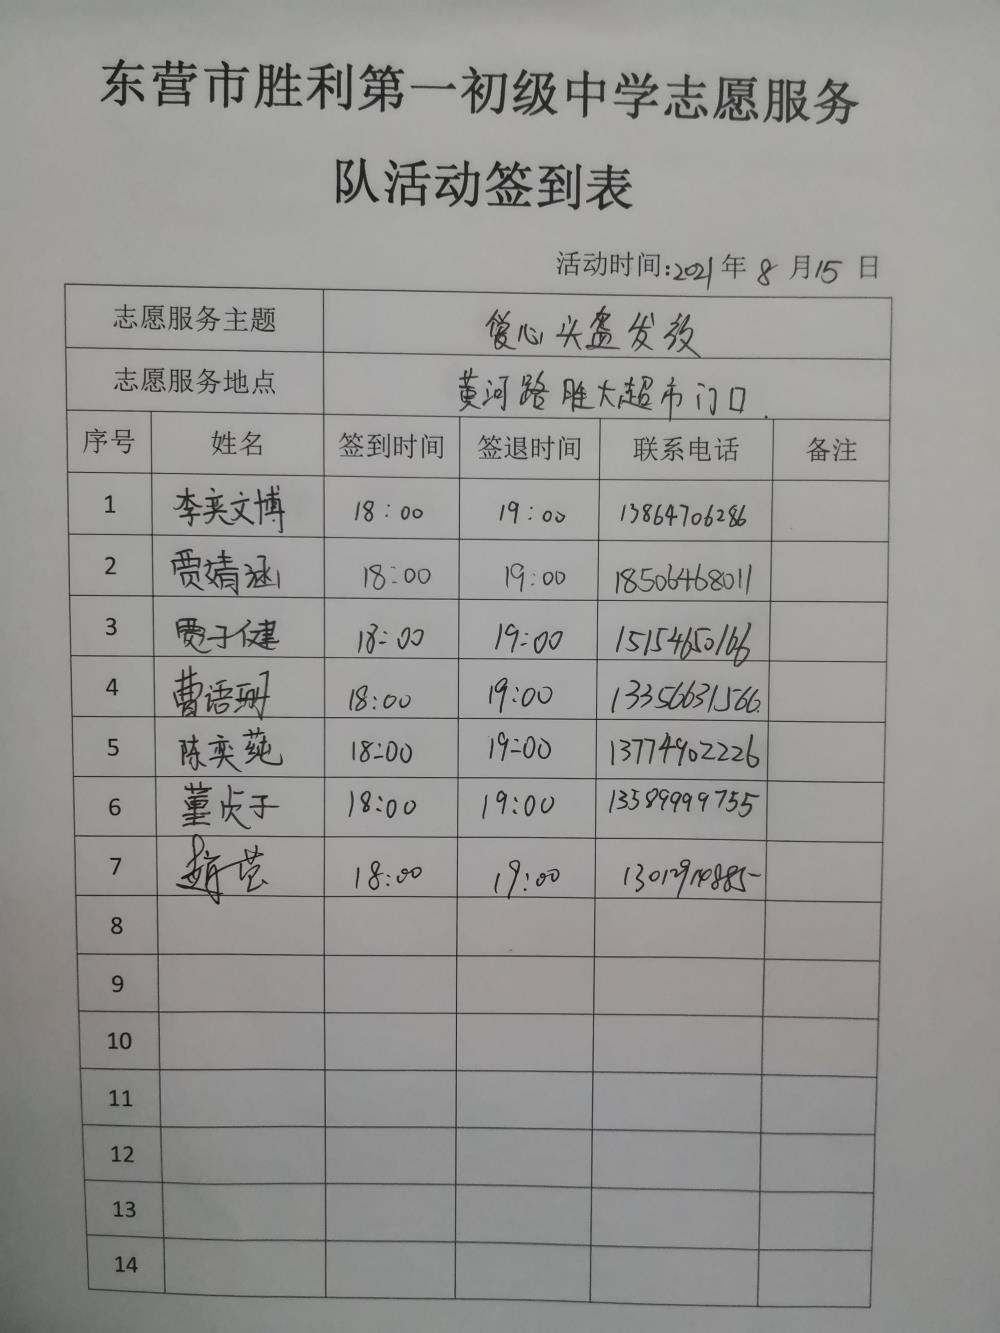 东营市胜利第一初级中学志愿服务
队活动签到表
活动时间:2021年8月15日
志愿服务主题 爱心头盔发放
志愿服务地点 黄河路胜大超市门口.
序号 姓名 签到时间 签退时间 联系电话 备注
1 李奕文博 18:00 19:00 13864706286
2 贾婧涵 18:00 19:00 18506468011
3 贾子健 18:00 19:00 15154650166
4 曹语珊 18:00 19:00 13356631566.
5 陈奕莼 18:00 19:00 13774902226
6 董贞子 18:00 19:00 13589999755
7 18:00 19:00
8
9
10
11
12
13
14